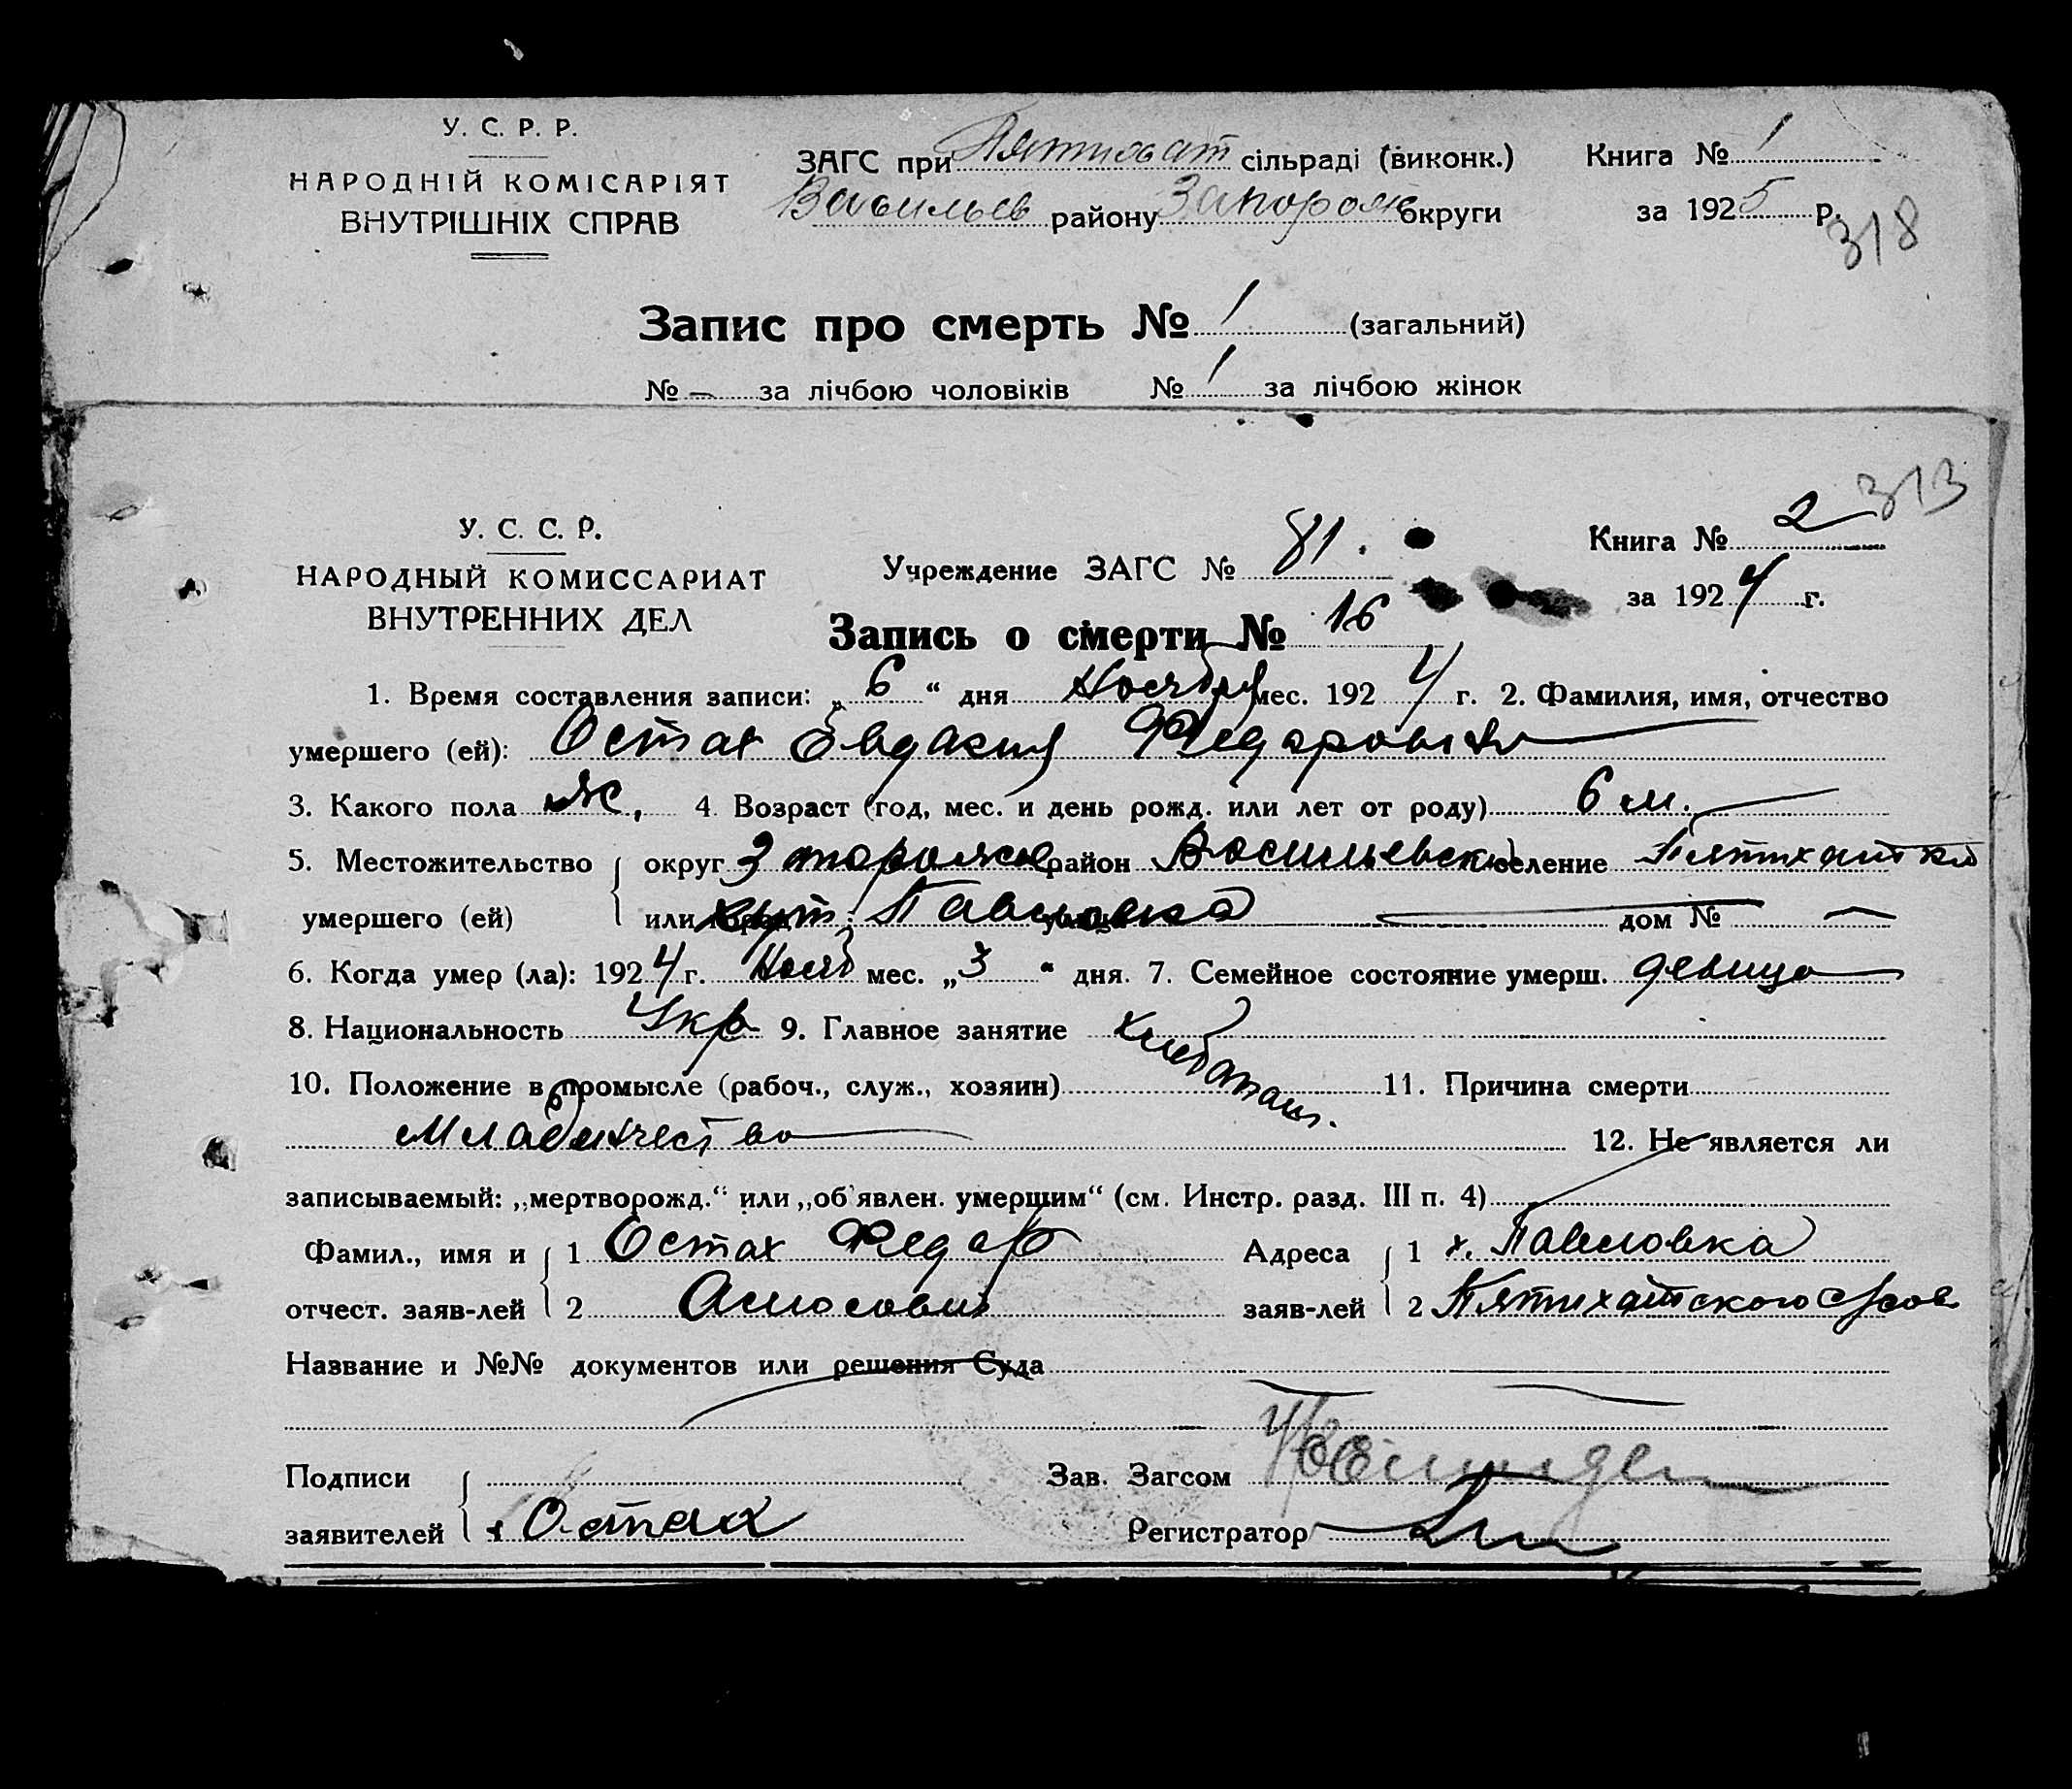 У. С. Р. Р.
НАРОДНІЙ КОМІСАРІЯТ
ВНУТРІШНІХ СПРАВ
ЗАГС при Пятихат сільраді (виконк.)
Васильев району Запорож округи
Книга № 1
за 1925 р.
318
Запис про смерть № 1 (загальний)
№ – за лічбою чоловіків № 1 за лічбою жінок
313
У. С. С. Р.
НАРОДНЫЙ КОМИССАРИАТ
ВНУТРЕННИХ ДЕЛ
Учреждение ЗАГС № 81.
Книга № 2
за 1924 г.
Запись о смерти № 16
1. Время составления записи: „6“ дня Ноября мес. 1924 г. 2. Фамилия, имя, отчество
умершего (ей): Остах Евдакия Федаровна
3. Какого пола ж, 4. Возраст (год, мес. и день рожд. или лет от роду) 6 м.
5. Местожительство округ Запорожье район Васильевский селение Пятихатки
умершего (ей) или город хут. Павловка улица дом № —
6. Когда умер (ла): 1924 г. Нояб мес. „3“ дня. 7. Семейное состояние умерш. девица
8. Национальность Укр 9. Главное занятие хлебопаш.
10. Положение в промысле (рабоч., служ., хозяин) 11. Причина смерти
Младенчество 12. Не является ли
записываемый: „мертворожд.“ или „об'явлен. умершим“ (см. Инстр. разд. III п. 4)
Фамил., имя и 1 Остах Федар Адреса 1 х. Павловка
отчест. заяв-лей 2 заяв-лей 2 Пятихатского с/сов
Название и №№ документов или решения Суда
Подписи Зав. Загсом
заявителей Остах Регистратор